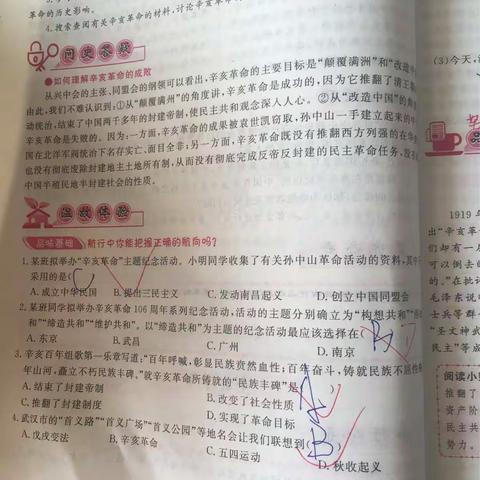 革命的历史影响。
4.搜索查阅有关辛亥革命的材料,讨论辛亥革
问史答疑
●如何理解辛亥革命的成败
从兴中会的主张、同盟会的纲领可以看出,辛亥革命的主要目标是“颠覆满洲”和“改造中
由此,我们不难认识到,①从“颠覆满洲”的角度讲,辛亥革命是成功的,因为它推翻了清王朝
动统治,结束了中国两千多年的封建帝制,使民主共和观念深入人心。②从“改造中国”的角
辛亥革命是失败的。因为:一方面,辛亥革命的成果被袁世凯窃取,孙中山一手建立起来的中
国在北洋军阀统治下名存实亡、面目全非;另一方面,辛亥革命既没有推翻西方列强的在华
也没有彻底废除封建地主土地所有制,从而没有彻底完成反帝反封建的民主革命任务,没有
中国半殖民地半封建社会的性质。
温故体验
品味基础 航行中你能把握正确的航向吗?
1.某班拟举办“辛亥革命”主题纪念活动。小明同学收集了有关孙中山革命活动的资料,其中
采用的是(C
A.成立中华民国 B.提出三民主义 C.发动南昌起义 D.创立中国同盟会
2.某班同学拟举办辛亥革命106周年系列纪念活动,活动的主题分别确立为“构想共和”“
和”“缔造共和”“维护共和”。以“缔造共和”为主题的纪念活动最应该选择在(B
A.东京 B.武昌 C.广州 D.南京
3.辛亥百年组歌第一乐章写道:“百年呼喊,彰显民族贲然血性;百年奋斗,铸就民族不屈
年山河,矗立不朽民族丰碑。”就辛亥革命所铸就的“民族丰碑”是(A)
A.结束了封建帝制 B.改变了社会性质
C.推翻了封建制度 D.实现了革命目标
4.武汉市的“首义路”“首义广场”“首义公园”等地名会让我们联想到(B)
A.戊戌变法 B.辛亥革命 C.五四运动 D.秋收起义
(3)今天,
品
1919
出“辛亥革
们却有一
可以倒去
的。”在批
毛泽东说
士兵等群
“圣文神武
民主”等成
阅读小
推翻了
资产阶
民主共
努力。